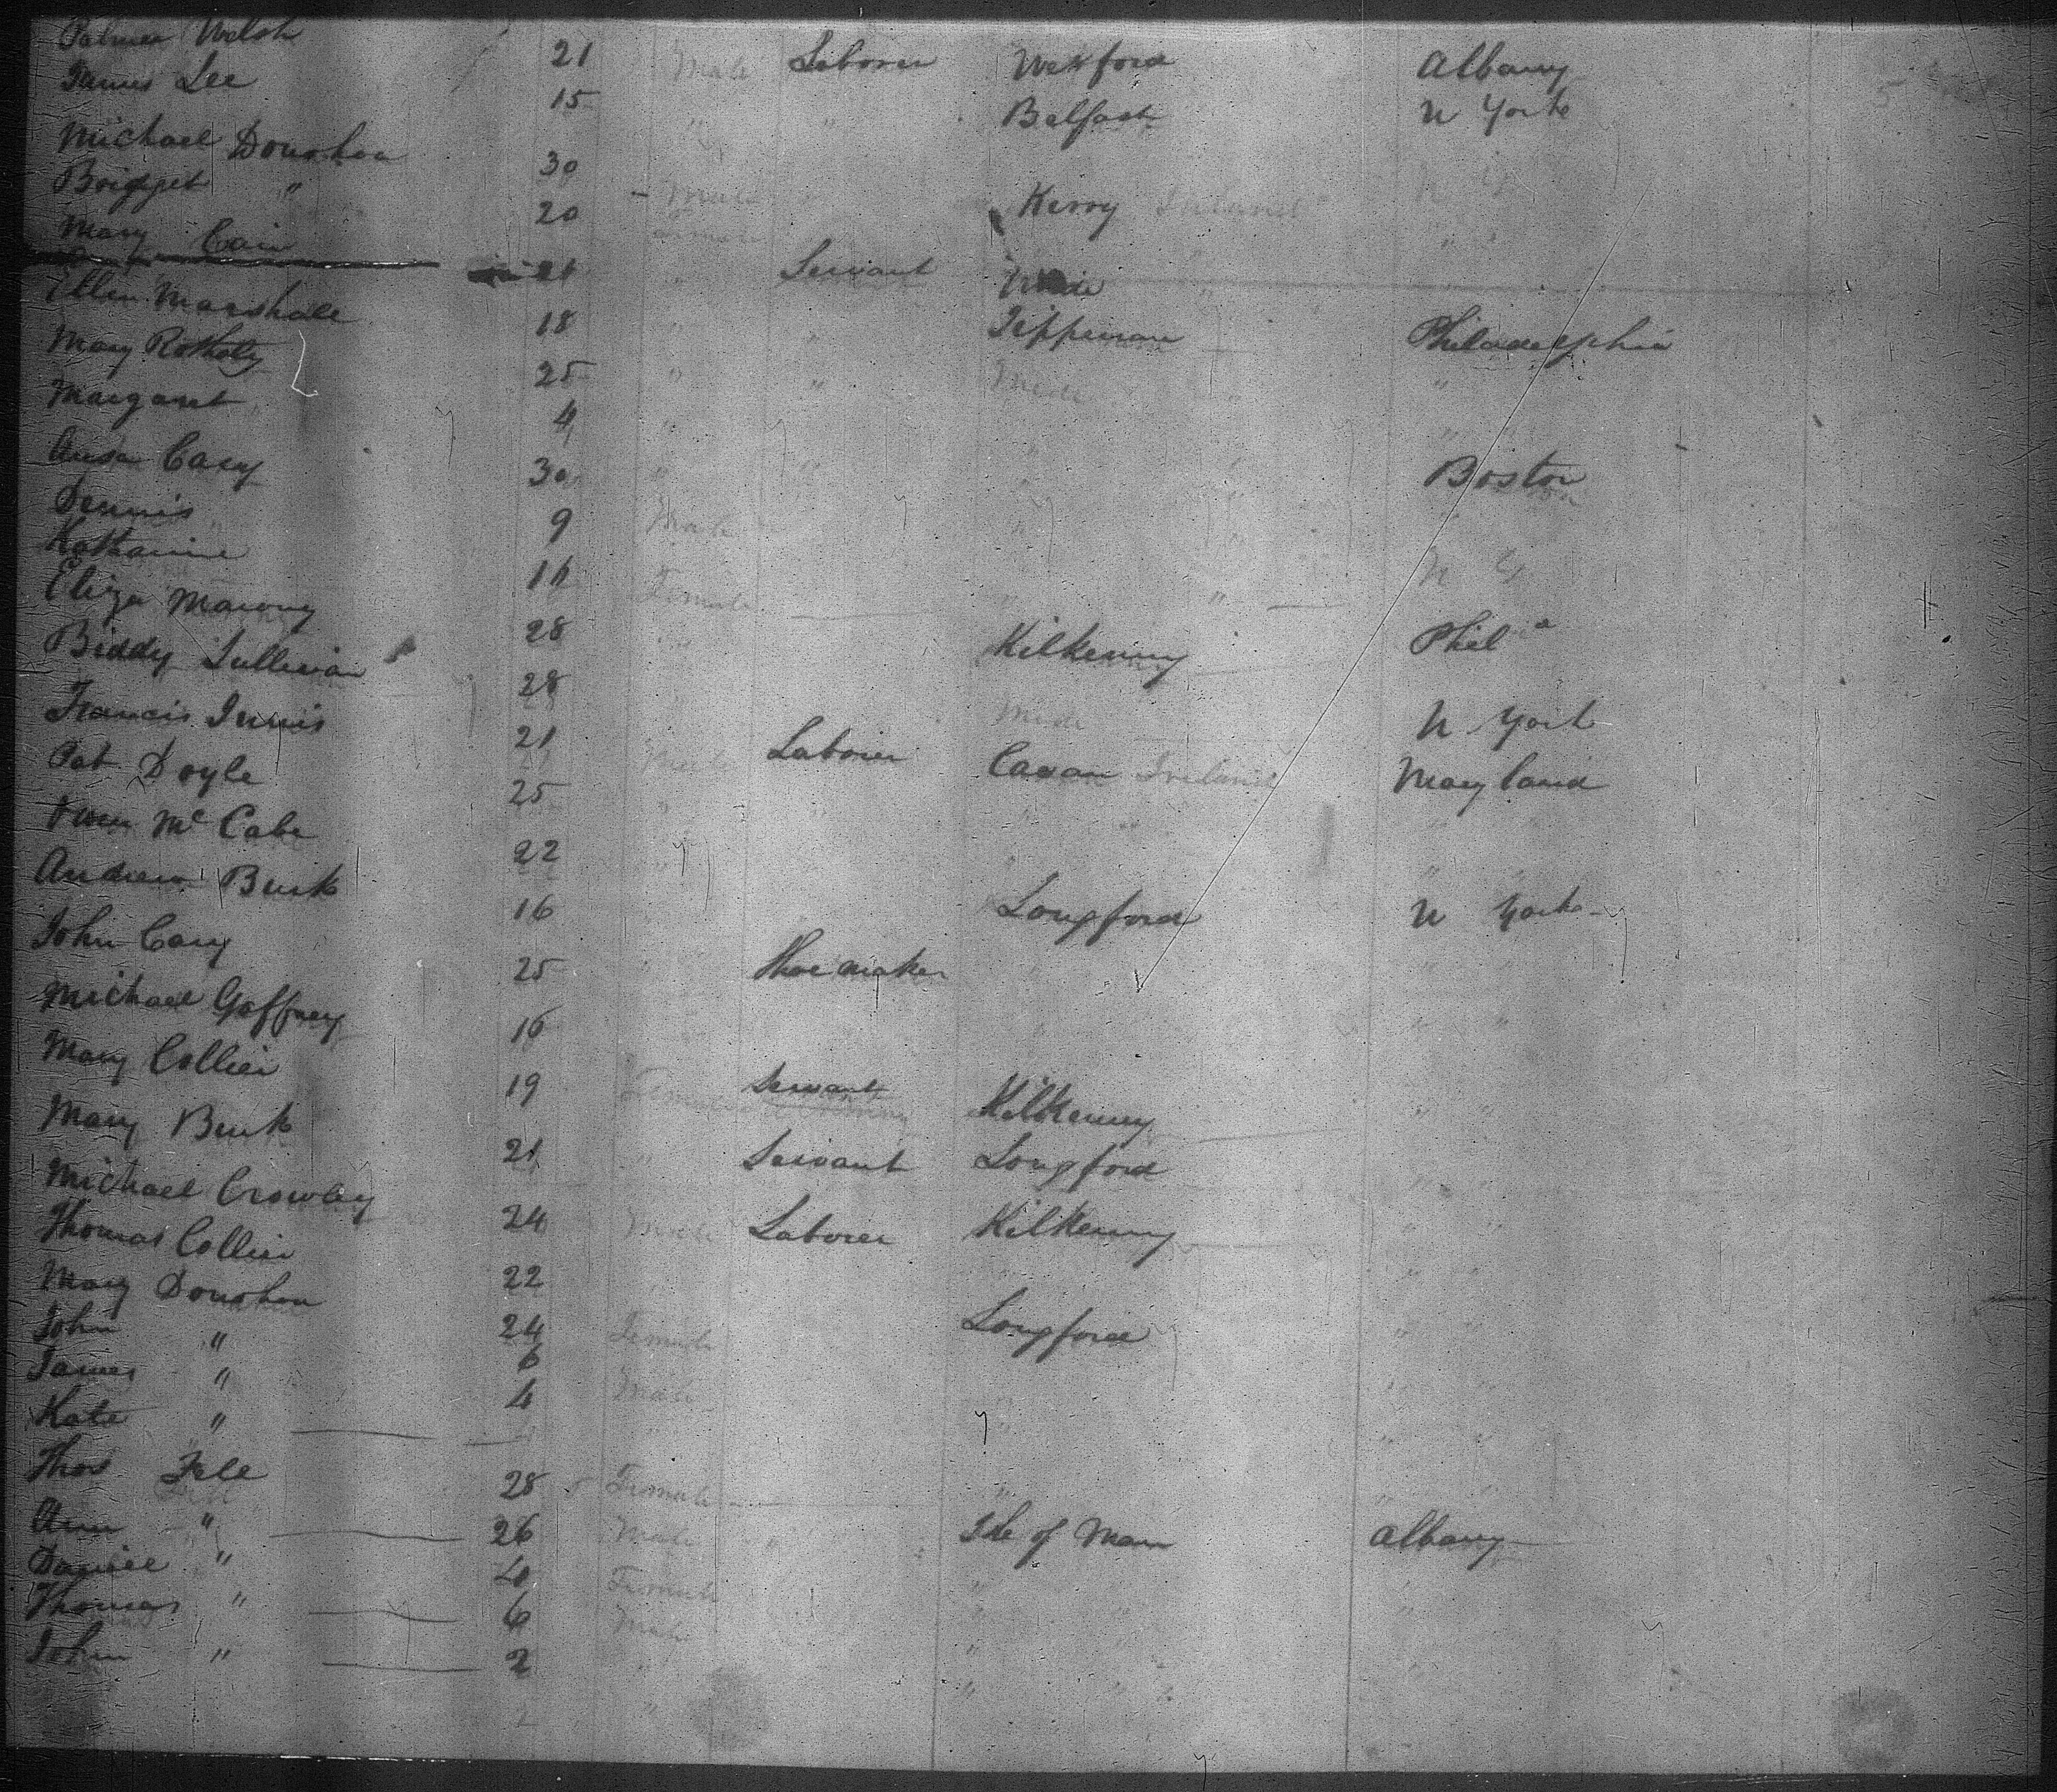 Palmer Welsh 21 Male Laborer Wexford Albany
James Lee 15 " " Belfast N York
Michael Donohou 30 Male " Kerry Ireland N Y
Bridget " 20 Female " "
Mary Cain 21 " Servant " "
Ellen Marshall 18 " " Tipperary Philadelphia
Mary 25 " " Mide " "
Margaret 4 " " "
Casey 30 " " " Boston
Dennis 9 Male " " "
Katharine 11 Female " " N Y
Eliza Marony 28 " Kilkenny Phila
Biddy Sullivan 28 Mide N York
Francis Innis 21 Male Laborer Cavan Ireland Maryland
Pat Doyle 25 " " "
Owen Mc Cabe 22 " " " "
Andrew Burk 16 Longford N York
John Cary 25 " Shoemaker " "
Michael Gaffney 16 " "
Mary Collier 19 Female Servant Kilkenny " "
Mary Burk 21 " Servant Longford " "
Michael Crowley 24 Male Laborer Kilkenny " "
Thomas Collier 22 " " "
Mary Donohou 24 Female Longford " "
John " 6 Male " "
James " 4 " "
Kate " Female " "
Thos Fell 28 Male " Isle of Man Albany
Ann " 26 Female " "
Daniel " 4 Male " "
Thomas " 6 " "
John " 2 " "